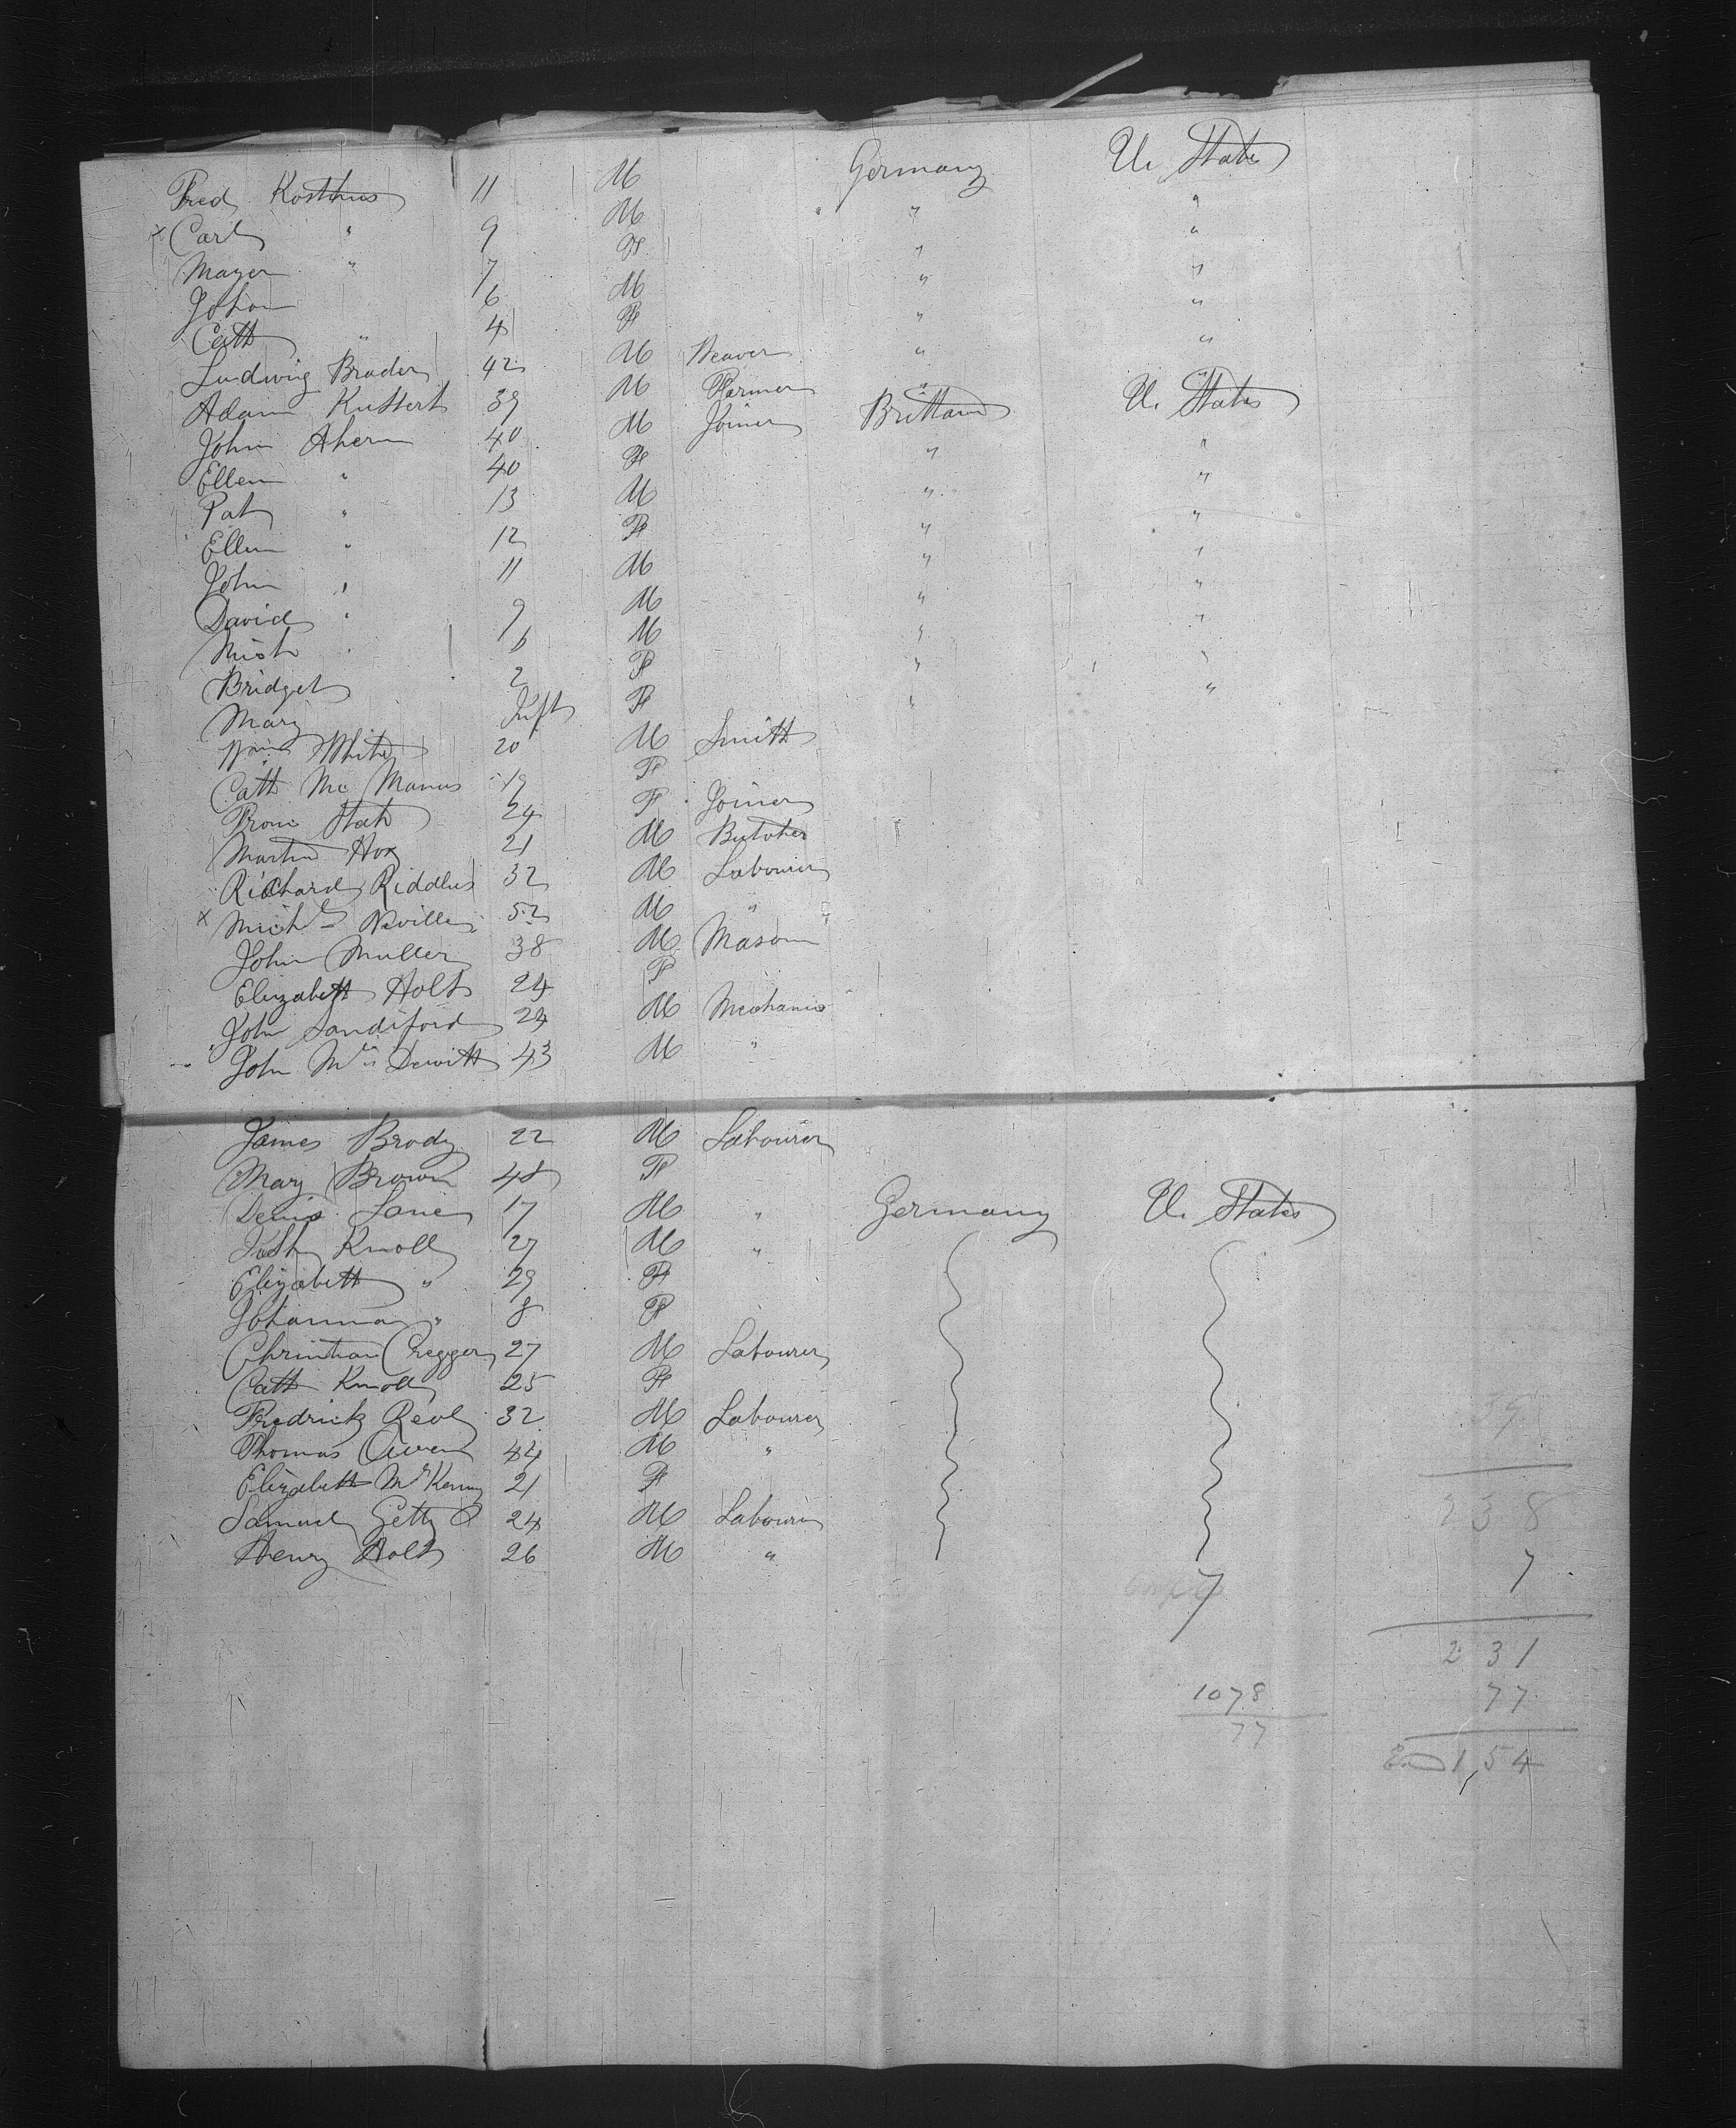 Fred Kosthus 11 M Germany U. States
x Carl " 9 M " "
Mayer " 7 F " "
Johan 6 M " "
Cath " 4 F " "
Ludwig Brader 42 M Weaver " "
Adam Kuttert 39 M Farmer " "
John Ahern 40 M Joiner Brittain U. States
Ellen " 40 F " "
Pat " 13 M " "
Ellen " 12 F " "
John " 11 M " "
David " 9 M " "
Mich " 6 M " "
Bridget 2 F " "
Mary Inft F " "
Wm White 20 M Smith
Cath Mc Manus 19 F
24 F Joiner
Martin Hoy 21 M Butcher
Richard Riddles 32 M Labourer
x Michl Neville 52 M "
John Muller 38 M Mason
Elizabeth Holt 24 F
John Sandiford 24 M Mechanic
John Mc Dewitt 43 M "
James Brody 22 M Labourer
Mary Brown 48 F
Denis Lane 17 M " Germany U. States
Knoll 27 M "
Elizabeth " 29 F
Johanna " 8 F
Christian Cregger 27 M Labourer
Cath Knoll 25 F
Fredrick 32 M Labourer
Thomas Owen 44 M "
Elizabeth McKenny 21 F
Samuel Getty 24 M Labourer
Henry Holt 26 M "
39
238
7 7
231
1078 77
77
154